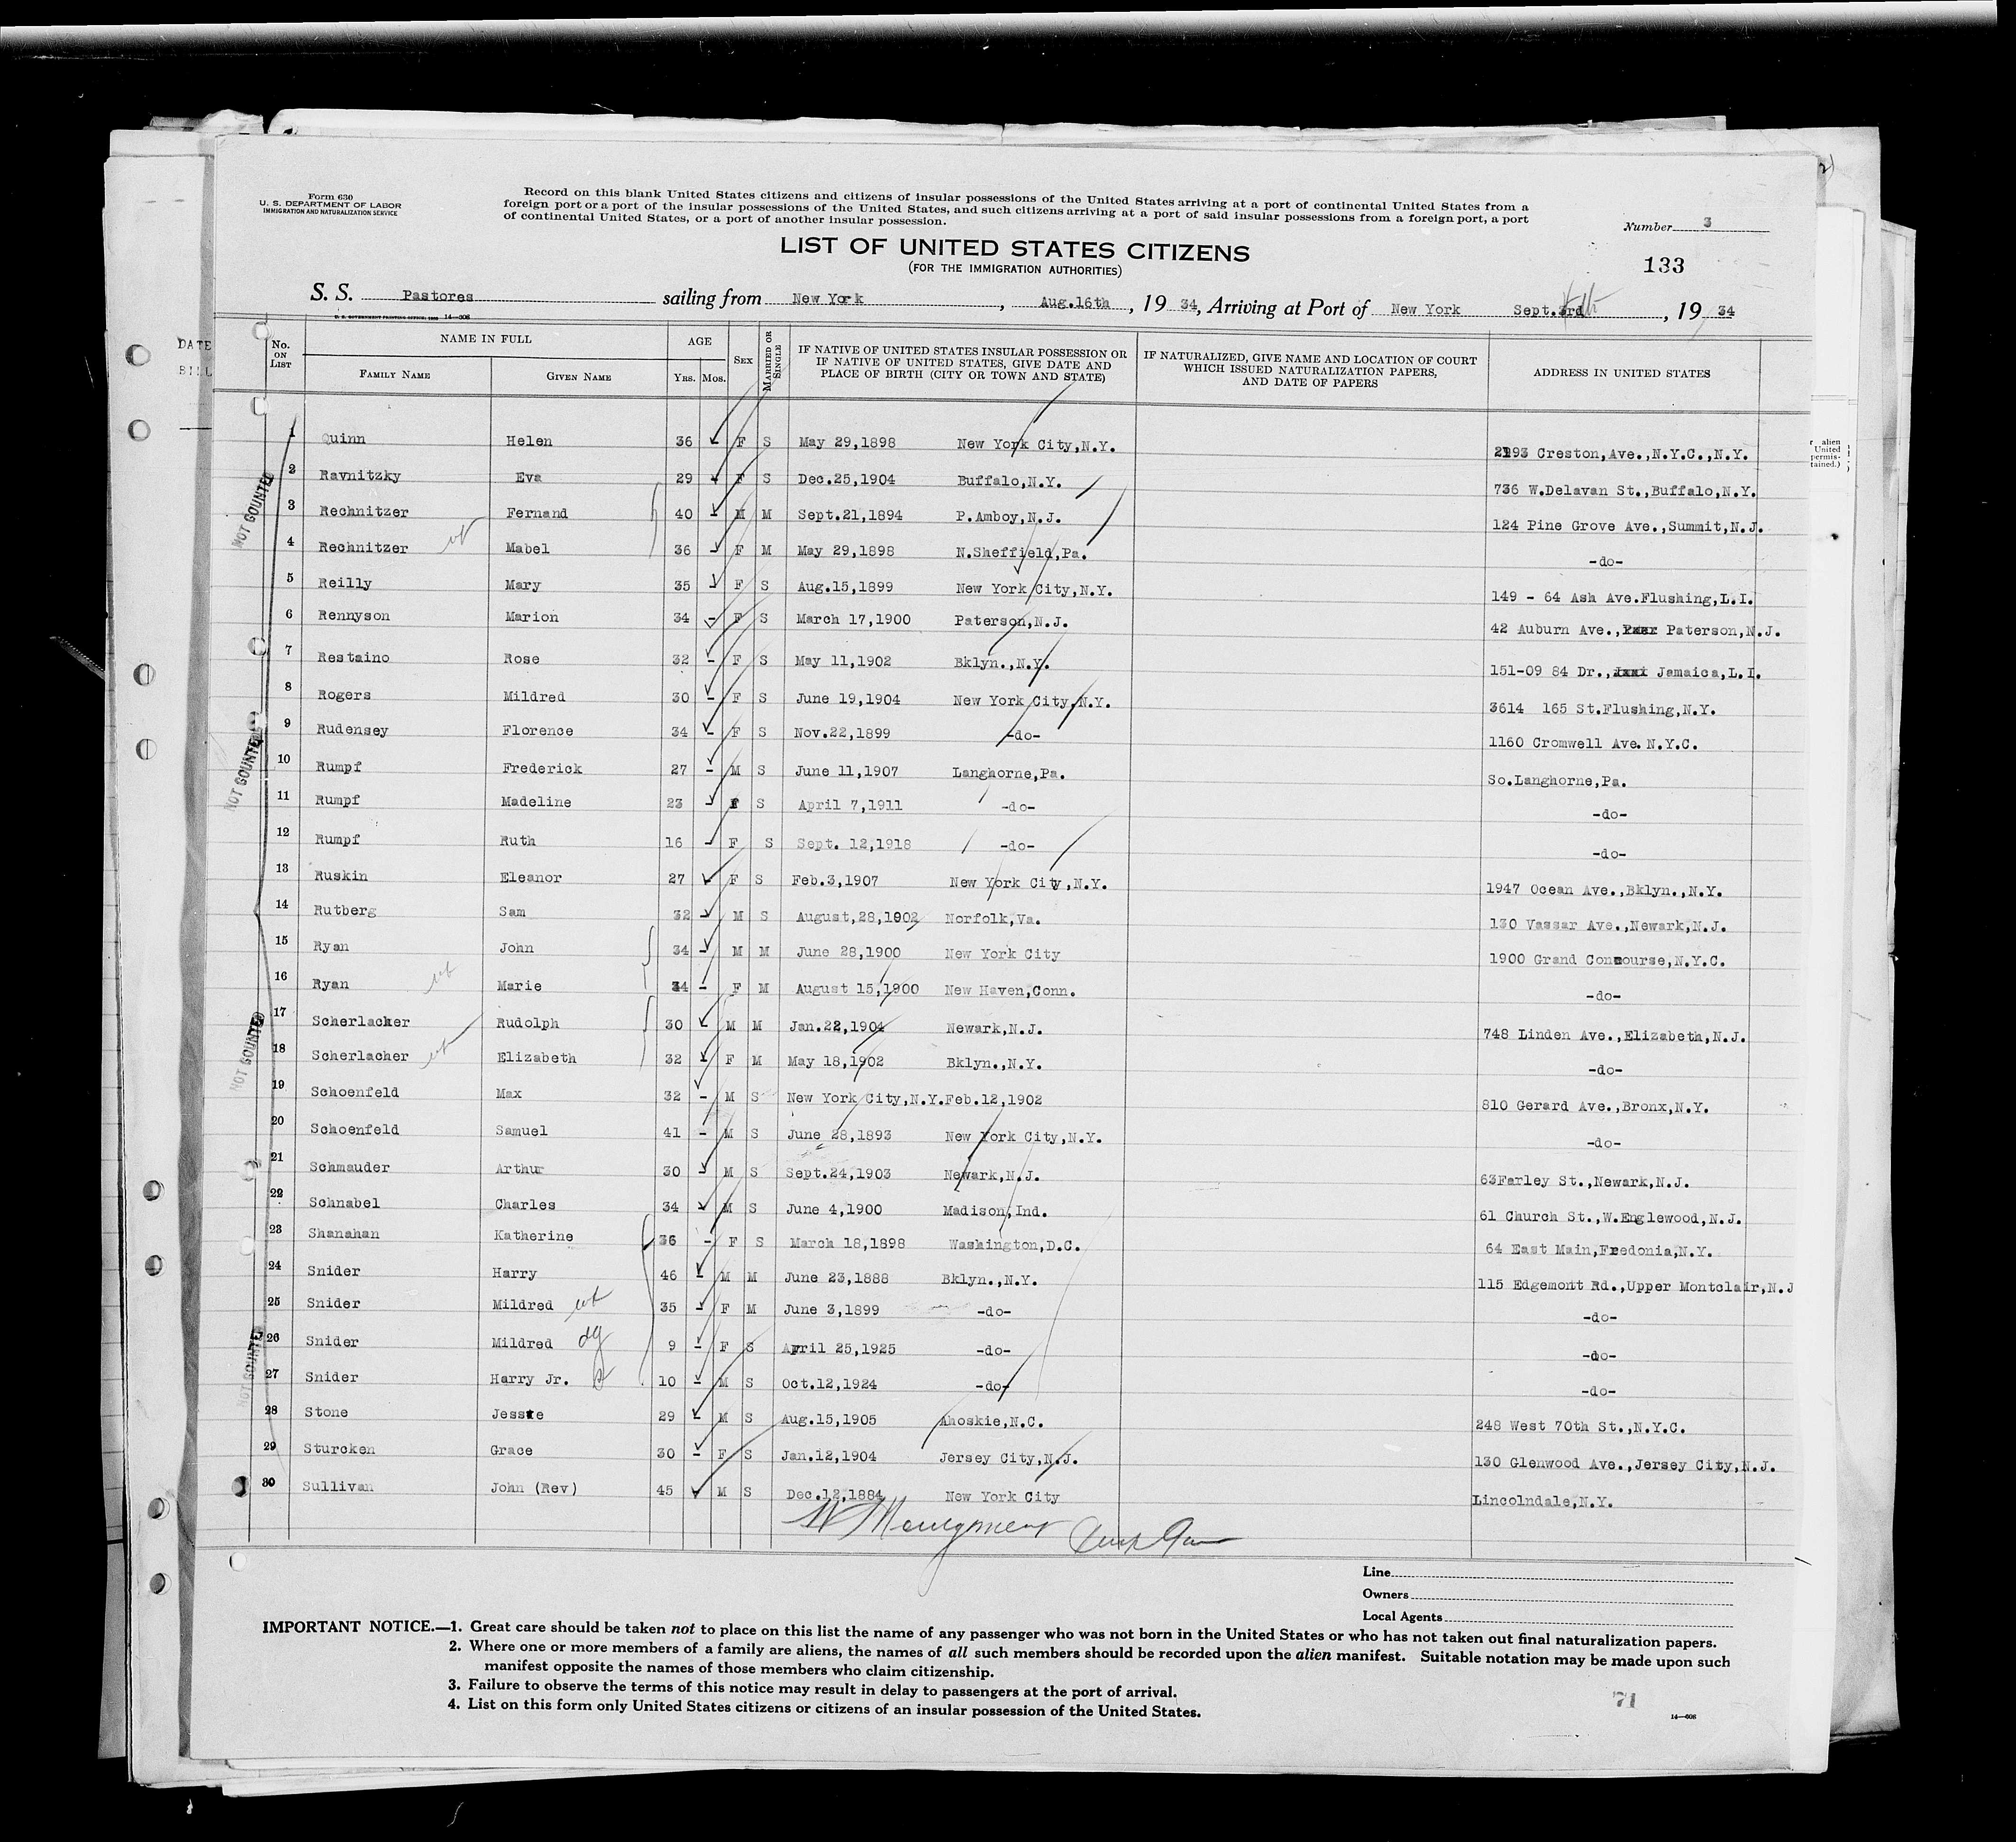 Form 630
U. S. DEPARTMENT OF LABOR
IMMIGRATION AND NATURALIZATION SERVICE
Record on this blank United States citizens and citizens of insular possessions of the United States arriving at a port of continental United States from a
foreign port or a port of the insular possessions of the United States, and such citizens arriving at a port of said insular possessions from a foreign port, a port
of continental United States, or a port of another insular possession.
Number 3
LIST OF UNITED STATES CITIZENS
(FOR THE IMMIGRATION AUTHORITIES)
133
S. S. Pastores sailing from New York, Aug.16th, 19 34, Arriving at Port of New York Sept.3rd, 19 34
U. S. GOVERNMENT PRINTING OFFICE: 14—608
DATE
BILL
No. ON LIST NAME IN FULL FAMILY NAME GIVEN NAME AGE YRS. MOS. SEX MARRIED OR SINGLE IF NATIVE OF UNITED STATES INSULAR POSSESSION OR IF NATIVE OF UNITED STATES, GIVE DATE AND PLACE OF BIRTH (CITY OR TOWN AND STATE) IF NATURALIZED, GIVE NAME AND LOCATION OF COURT WHICH ISSUED NATURALIZATION PAPERS, AND DATE OF PAPERS ADDRESS IN UNITED STATES
r alien
United
permis-
tained.)
1 Quinn Helen 36 - F S May 29,1898 New York City,N.Y. 2193 Creston,Ave.,N.Y.C.,N.Y.
2 Ravnitzky Eva 29 - F S Dec.25,1904 Buffalo,N.Y. 736 W.Delavan St.,Buffalo,N.Y.
3 Rechnitzer Fernand 40 - M M Sept.21,1894 P.Amboy,N.J. 124 Pine Grove Ave.,Summit,N.J.
4 Rechnitzer wf Mabel 36 - F M May 29,1898 N.Sheffield,Pa. -do-
5 Reilly Mary 35 - F S Aug.15,1899 New York City,N.Y. 149 - 64 Ash Ave.Flushing,L.I.
6 Rennyson Marion 34 - F S March 17,1900 Paterson,N.J. 42 Auburn Ave., Paterson,N.J.
7 Restaino Rose 32 - F S May 11,1902 Bklyn.,N.Y. 151-09 84 Dr., Jamaica,L.I.
8 Rogers Mildred 30 - F S June 19,1904 New York City,N.Y. 3614 165 St.Flushing,N.Y.
9 Rudensey Florence 34 - F S Nov.22,1899 -do- 1160 Cromwell Ave.N.Y.C.
10 Rumpf Frederick 27 - M S June 11,1907 Langhorne,Pa. So.Langhorne,Pa.
11 Rumpf Madeline 23 - F S April 7,1911 -do- -do-
12 Rumpf Ruth 16 - F S Sept. 12,1918 -do- -do-
13 Ruskin Eleanor 27 - F S Feb.3,1907 New York City,N.Y. 1947 Ocean Ave.,Bklyn.,N.Y.
14 Rutberg Sam 32 - M S August,28,1902 Norfolk,Va. 130 Vassar Ave.,Newark,N.J.
15 Ryan John 34 - M M June 28,1900 New York City 1900 Grand Concourse,N.Y.C.
16 Ryan wf Marie 34 - F M August 15,1900 New Haven,Conn. -do-
17 Scherlacher Rudolph 30 - M M Jan.22,1904 Newark,N.J. 748 Linden Ave.,Elizabeth,N.J.
18 Scherlacher wf Elizabeth 32 - F M May 18,1902 Bklyn.,N.Y. -do-
19 Schoenfeld Max 32 - M S New York City,N.Y.Feb.12,1902 810 Gerard Ave.,Bronx,N.Y.
20 Schoenfeld Samuel 41 - M S June 28,1893 New York City,N.Y. -do-
21 Schmauder Arthur 30 - M S Sept.24,1903 Newark,N.J. 63Farley St.,Newark,N.J.
22 Schnabel Charles 34 - M S June 4,1900 Madison,Ind. 61 Church St.,W.Englewood,N.J.
23 Shanahan Katherine 36 - F S March 18,1898 Washington,D.C. 64 East Main,Fredonia,N.Y.
24 Snider Harry 46 - M M June 23,1888 Bklyn.,N.Y. 115 Edgemont Rd.,Upper Montclair,N.J
25 Snider Mildred wf 35 - F M June 3,1899 -do- -do-
26 Snider Mildred dg 9 - F S April 25,1925 -do- -do-
27 Snider Harry Jr. s 10 - M S Oct.12,1924 -do- -do-
28 Stone Jesse 29 - M S Aug.15,1905 Ahoskie,N.C. 248 West 70th St.,N.Y.C.
29 Sturcken Grace 30 - F S Jan.12,1904 Jersey City,N.J. 130 Glenwood Ave.,Jersey City,N.J.
30 Sullivan John (Rev) 45 M S Dec.12,1884 New York City Lincolndale,N.Y.
NOT COUNTED
NOT COUNTED
NOT COUNTED
NOT COUNTED
Line
Owners
Local Agents
IMPORTANT NOTICE.—1. Great care should be taken not to place on this list the name of any passenger who was not born in the United States or who has not taken out final naturalization papers.
2. Where one or more members of a family are aliens, the names of all such members should be recorded upon the alien manifest. Suitable notation may be made upon such
manifest opposite the names of those members who claim citizenship.
3. Failure to observe the terms of this notice may result in delay to passengers at the port of arrival.
4. List on this form only United States citizens or citizens of an insular possession of the United States.
71
14—608